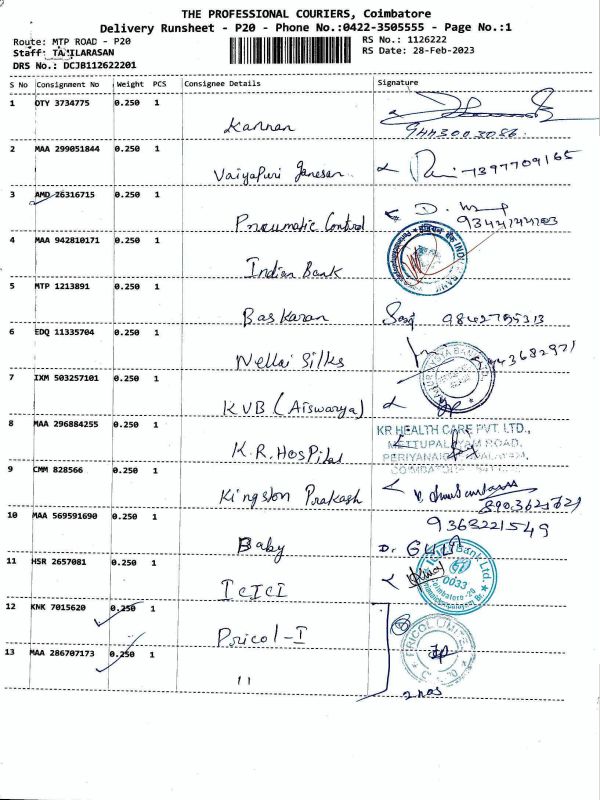 THE PROFESSIONAL COURIERS, Coimbatore
Delivery Runsheet - P20 - Phone No.:0422-3505555 - Page No.:1
Route: MTP ROAD - P20
RS No.: 1126222
Staff: TAMILARASAN
RS Date: 28-Feb-2023
DRS No.: DCJB112622201
S No Consignment No Weight PCS Consignee Details Signature
1 OTY 3734775 0.250 1
Kannan
2 MAA 299051844 0.250 1
Vaiyapuri Ganesan 7397709165
3 AMD 26316715 0.250 1
Pneumatic Control
4 MAA 942810171 0.250 1
Indian Bank
5 MTP 1213891 0.250 1
Baskaran 9842755313
6 EDQ 11335704 0.250 1
Nellai Silks
7 IXM 503257101 0.250 1
KVB (Aiswarya)
8 MAA 296884255 0.250 1
KR HEALTH CARE PVT. LTD.,
METTUPALAYAM ROAD,
K.R. Hospital
9 CMM 828566 0.250 1
Kingston Prakash
8903621721
10 MAA 569591690 0.250 1
9363221549
Baby
11 HSR 2657081 0.250 1
ICICI
0033
12 KNK 7015620 0.250 1
Pricol-I
PRICOL LIMITED
13 MAA 286707173 0.250 1
11
2 nos